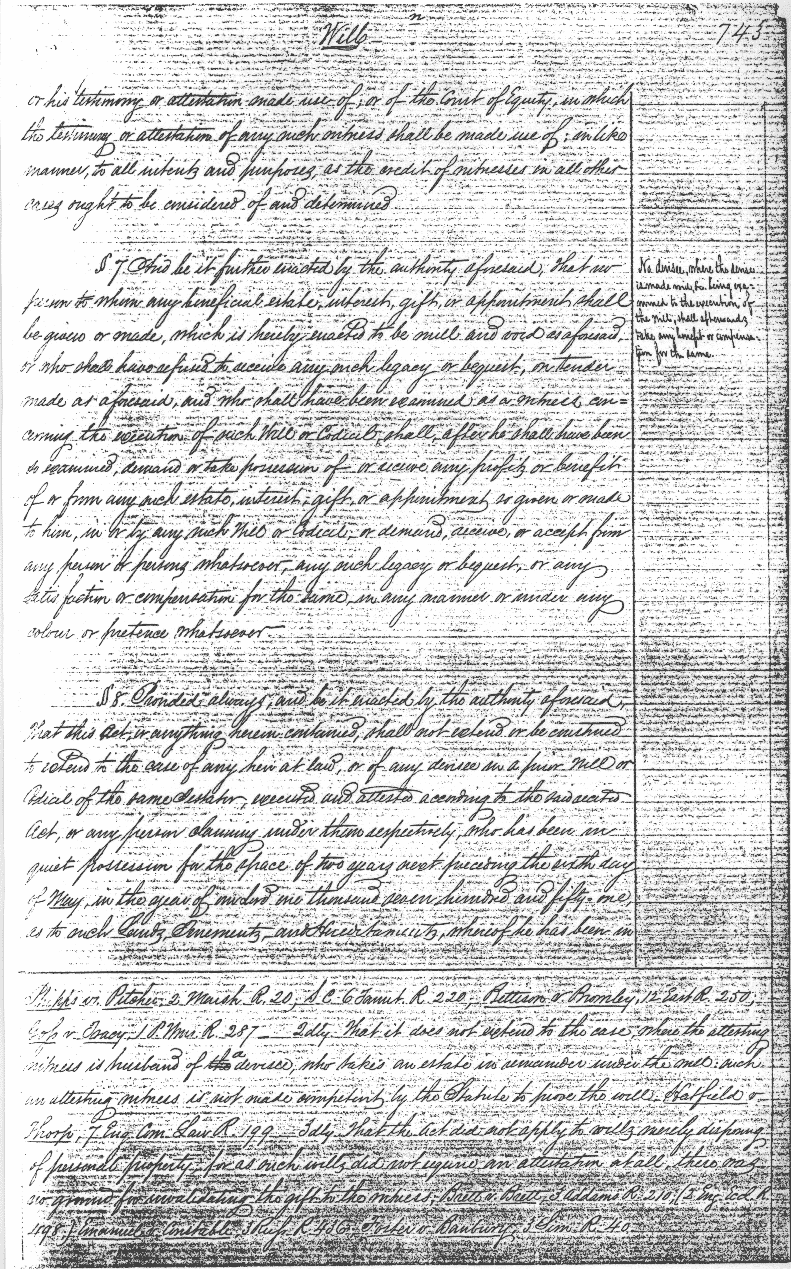 Wills
745
or his testimony or attestation made use of; or of the Court of Equity, in which
the testimony or attestation of any such witness shall be made use of; in like
manner, to all intents and purposes, as the credit of witnesses in all other
cases ought to be considered of and determined
§ 7. And be it further enacted by the authority aforesaid, That no
person to whom any beneficial estate, interest, gift, or appointment shall
be given or made, which is hereby enacted to be null and void as aforesaid,
or who shall have refused to receive any such legacy or bequest, on tender
made as aforesaid, and who shall have been examined as a witness con=
cerning the execution of such Will or Codicil, shall, after he shall have been
so examined, demand or take possession of or receive any profits or benefit
of or from any such estate, interest, gift, or appointment so given or made
to him, in or by any such Will or Codicil; or demand, receive, or accept from
any person or persons whatsoever, any such legacy or bequest, or any
satisfaction or compensation for the same, in any manner or under any
colour or pretence whatsoever.
No devisee, where the devise
is made void, being exa=
mined to the execution of
the Will, shall afterwards
take any benefit or compensa=
tion for the same.
§ 8. Provided always, and be it enacted by the authority aforesaid,
That this Act, or anything herein contained, shall not extend or be construed
to extend to the case of any heir at law, or of any devisee in a prior Will or
Codicil of the same testator, executed and attested according to the said recited
Act, or any person claiming under them respectively, who has been in
quiet possession for the space of two years next preceding the sixth day
of May, in the year of our Lord one thousand seven hundred and fifty-one,
as to such Lands, Tenements, and Hereditaments, whereof he has been in
Phipps v. Pitcher 2 Marsh. R. 20; S.C. 6 Taunt. R. 220; Pettison v. Bromley, 12 East R. 250;
v. Tracy 1 P. Wms. R. 287 — 2dly That it does not extend to the case, where the attesting
witness is husband of the a devisee, who takes an estate in remainder under the will: such
an attesting witness is not made competent by the Statute to prove the will. Hatfield v.
Thorp, 7 Eng. Com. Law R. 199 — 3dly That the Act did not apply to wills merely disposing
of personal property; for as such wills did not require an attestation at all, there was
no ground for invalidating the gift to the witness, Brett v. Brett, 3 Addams R. 210, (2 Eng. Eccl. R.
498.) Emanuel v. Constable, 3 Russ. R. 436; Foster v. Banbury, 3 Sim. R. 40.